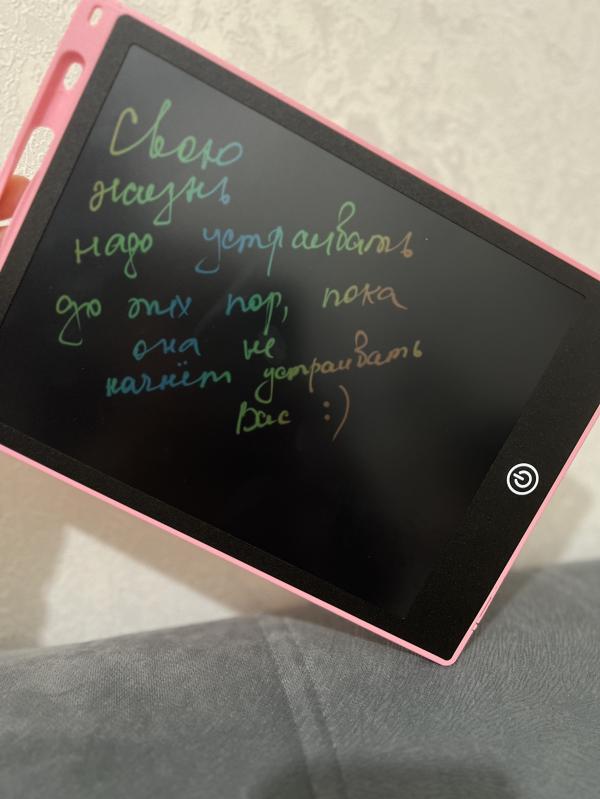 Свою
жизнь
надо устраивать
до тех пор, пока
она не
начнёт устраивать
Вас :)